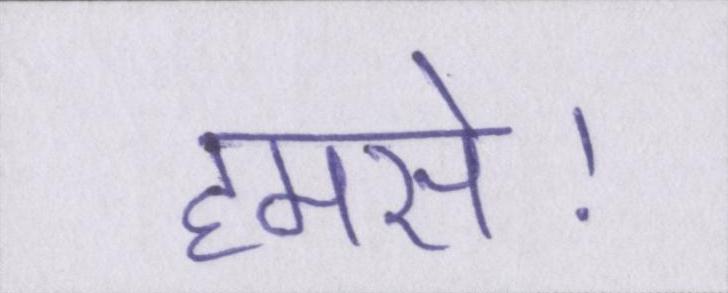 हमसे!